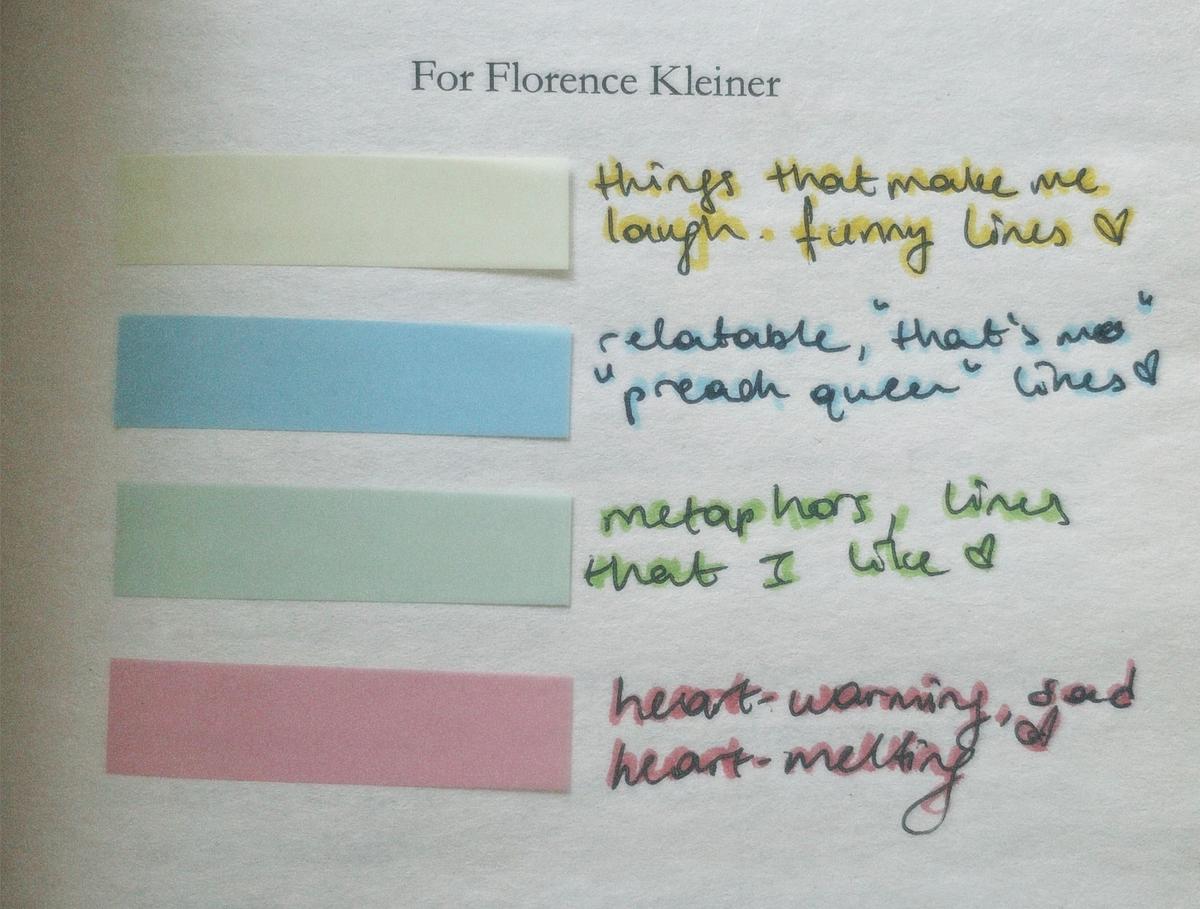 For Florence Kleiner
things that make me
laugh. funny lines
relatable, "that's me"
"preach queen" lines
metaphors, lines
that I like
heart-warming, sad
heart-melting